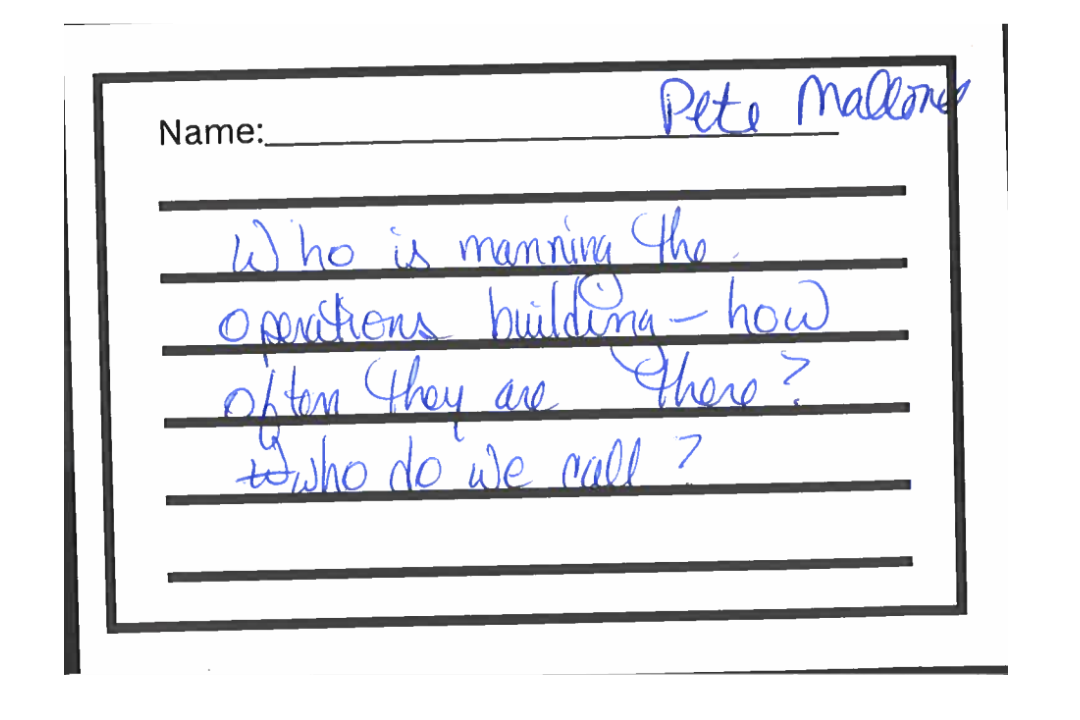 Name: Pete Mallone
Who is manning the
operations building - how
often they are there?
who do we call?